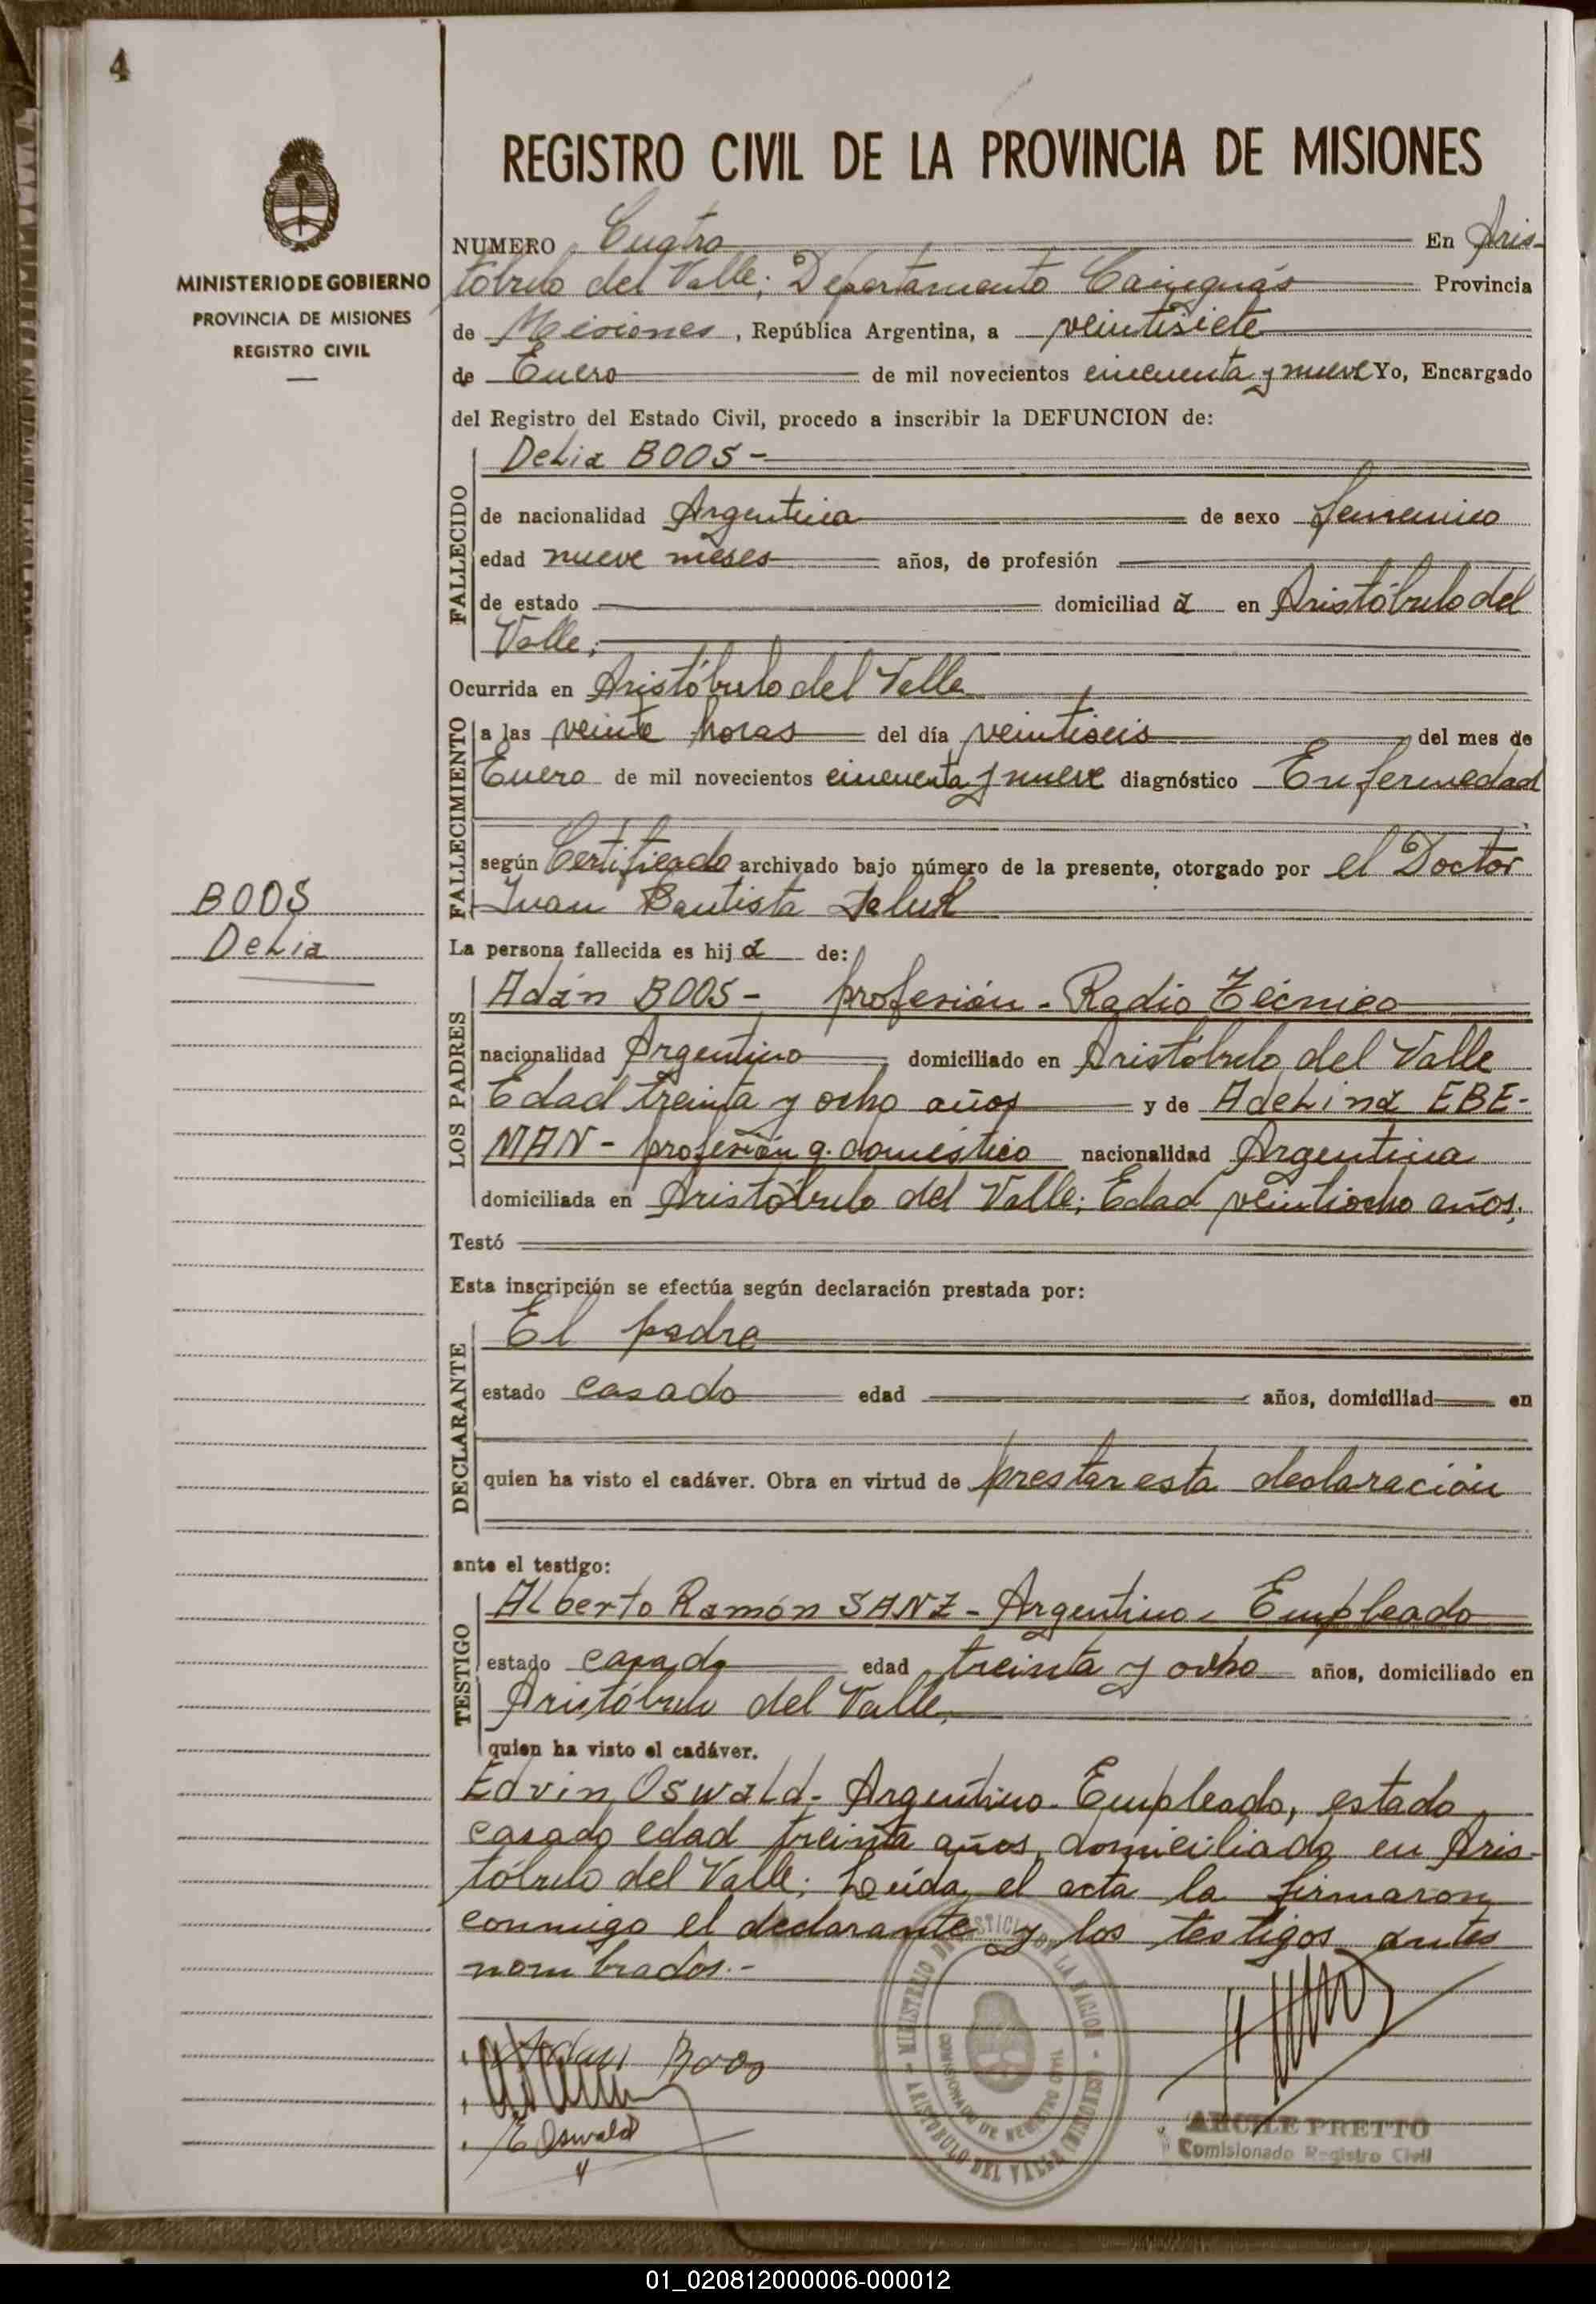 4
MINISTERIO DE GOBIERNO
PROVINCIA DE MISIONES
REGISTRO CIVIL
REGISTRO CIVIL DE LA PROVINCIA DE MISIONES
NUMERO Cuatro En Aris-
tóbulo del Valle; Departamento Cainguás Provincia
de Misiones, República Argentina, a veintisiete
de Enero de mil novecientos cincuenta y nueve Yo, Encargado
del Registro del Estado Civil, procedo a inscribir la DEFUNCION de:
FALLECIDO
Delia BOOS-
de nacionalidad Argentina de sexo femenino
edad nueve meses años, de profesión
de estado domiciliad a en Aristóbulo del
Valle;
Ocurrida en Aristóbulo del Valle
FALLECIMIENTO
a las veinte horas del día veintiseis del mes de
Enero de mil novecientos cincuenta y nueve diagnóstico Enfermedad
según Certificado archivado bajo número de la presente, otorgado por el Doctor
Juan Bautista
BOOS
Delia
La persona fallecida es hij a de:
LOS PADRES
Adán BOOS- profesión - Radio Técnico
nacionalidad Argentino domiciliado en Aristóbulo del Valle
Edad treinta y ocho años y de Adelina EBE-
MAN- profesión q. doméstico nacionalidad Argentina
domiciliada en Aristóbulo del Valle; Edad veintiocho años;
Testó
Esta inscripción se efectúa según declaración prestada por:
DECLARANTE
El padre
estado casado edad años, domiciliad en
quien ha visto el cadáver. Obra en virtud de prestar esta declaración
ante el testigo:
TESTIGO
Alberto Ramón SANZ - Argentino - Empleado
estado casado edad treinta y ocho años, domiciliado en
Aristóbulo del Valle,
quien ha visto el cadáver.
Edvin Oswald - Argentino - Empleado, estado
casado edad treinta años, domiciliado en Aris-
tóbulo del Valle; Leída el acta la firmaron
conmigo el declarante y los testigos antes
nombrados.-
MINISTERIO DE JUSTICIA DE LA NACION - ARISTOBULO DEL VALLE (MISIONES) -
COMISIONADO DE REGISTRO CIVIL
Adan Boos
E Oswald
ARCILE PRETTO
Comisionado Registro Civil
01_020812000006-000012